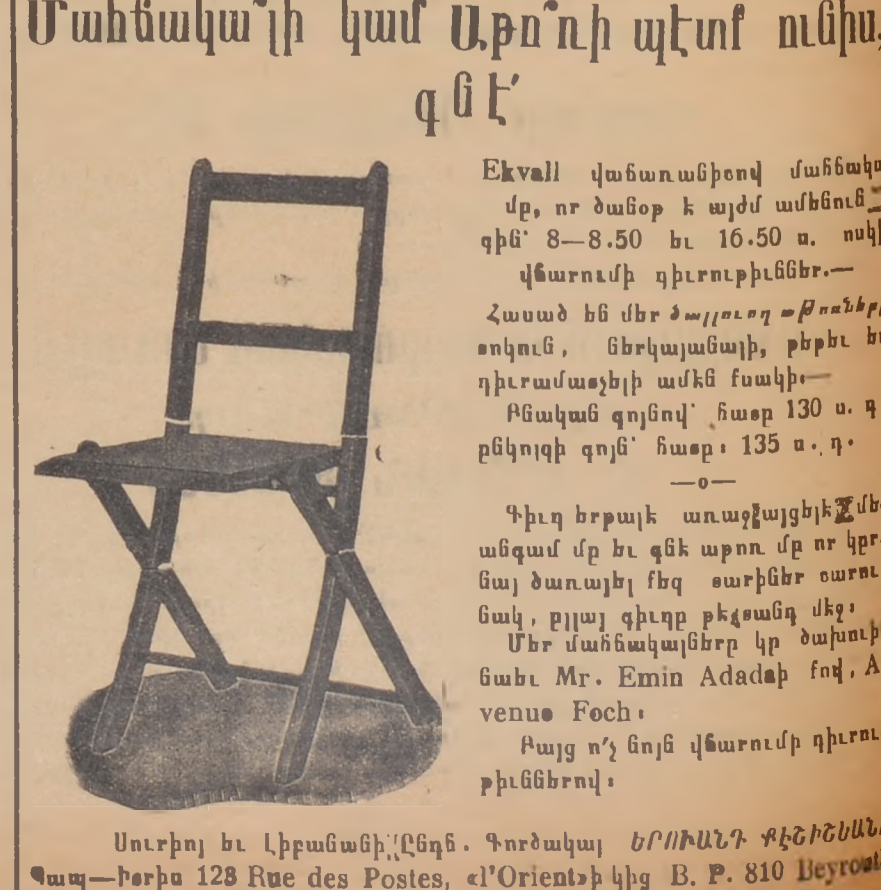 Մահճակա՞լի կամ Աթո՞ռի պէտք ունիս,
գնէ՛
Ekvall վաճառանիշով մահճակա
մը, որ ծանօթ է այժմ ամենուն
գին՝ 8—8.50 եւ 16.50 ս. ոսկի
վճարումի դիւրութիւններ.—
Հասած են մեր ծալլուող աթոռները
տոկուն, ներկայանալի, թեթեւ եւ
դիւրամատչելի ամէն քսակի.—
Բնական գոյնով՝ հատը 130 ս. դ
ընկոյզի գոյն՝ հատը. 135 ս. դ.
—o—
Գիւղ երթալէ առաջ այցելէ մե
անգամ մը եւ գնէ աթոռ մը որ կըր
նայ ծառայել քեզ տարիներ շարու
նակ, ըլլայ գիւղը թէ քաղաքի մէջ։
Մեր մահճակալները կը ծախուի
նաեւ Mr. Emin Adadեի քով, A
venue Foch.
Բայց ո՛չ նոյն վճարումի դիւրու
թիւններով։
Սուրիոյ եւ Լիբանանի Ընդհ. Գործակալ ԵՐՈՒԱՆԴ ՔԷՇԻՇԵԱՆ
Պապ—Իտրիս 128 Rue des Postes, «l'Orient»ի կից B. P. 810 Beyrouth